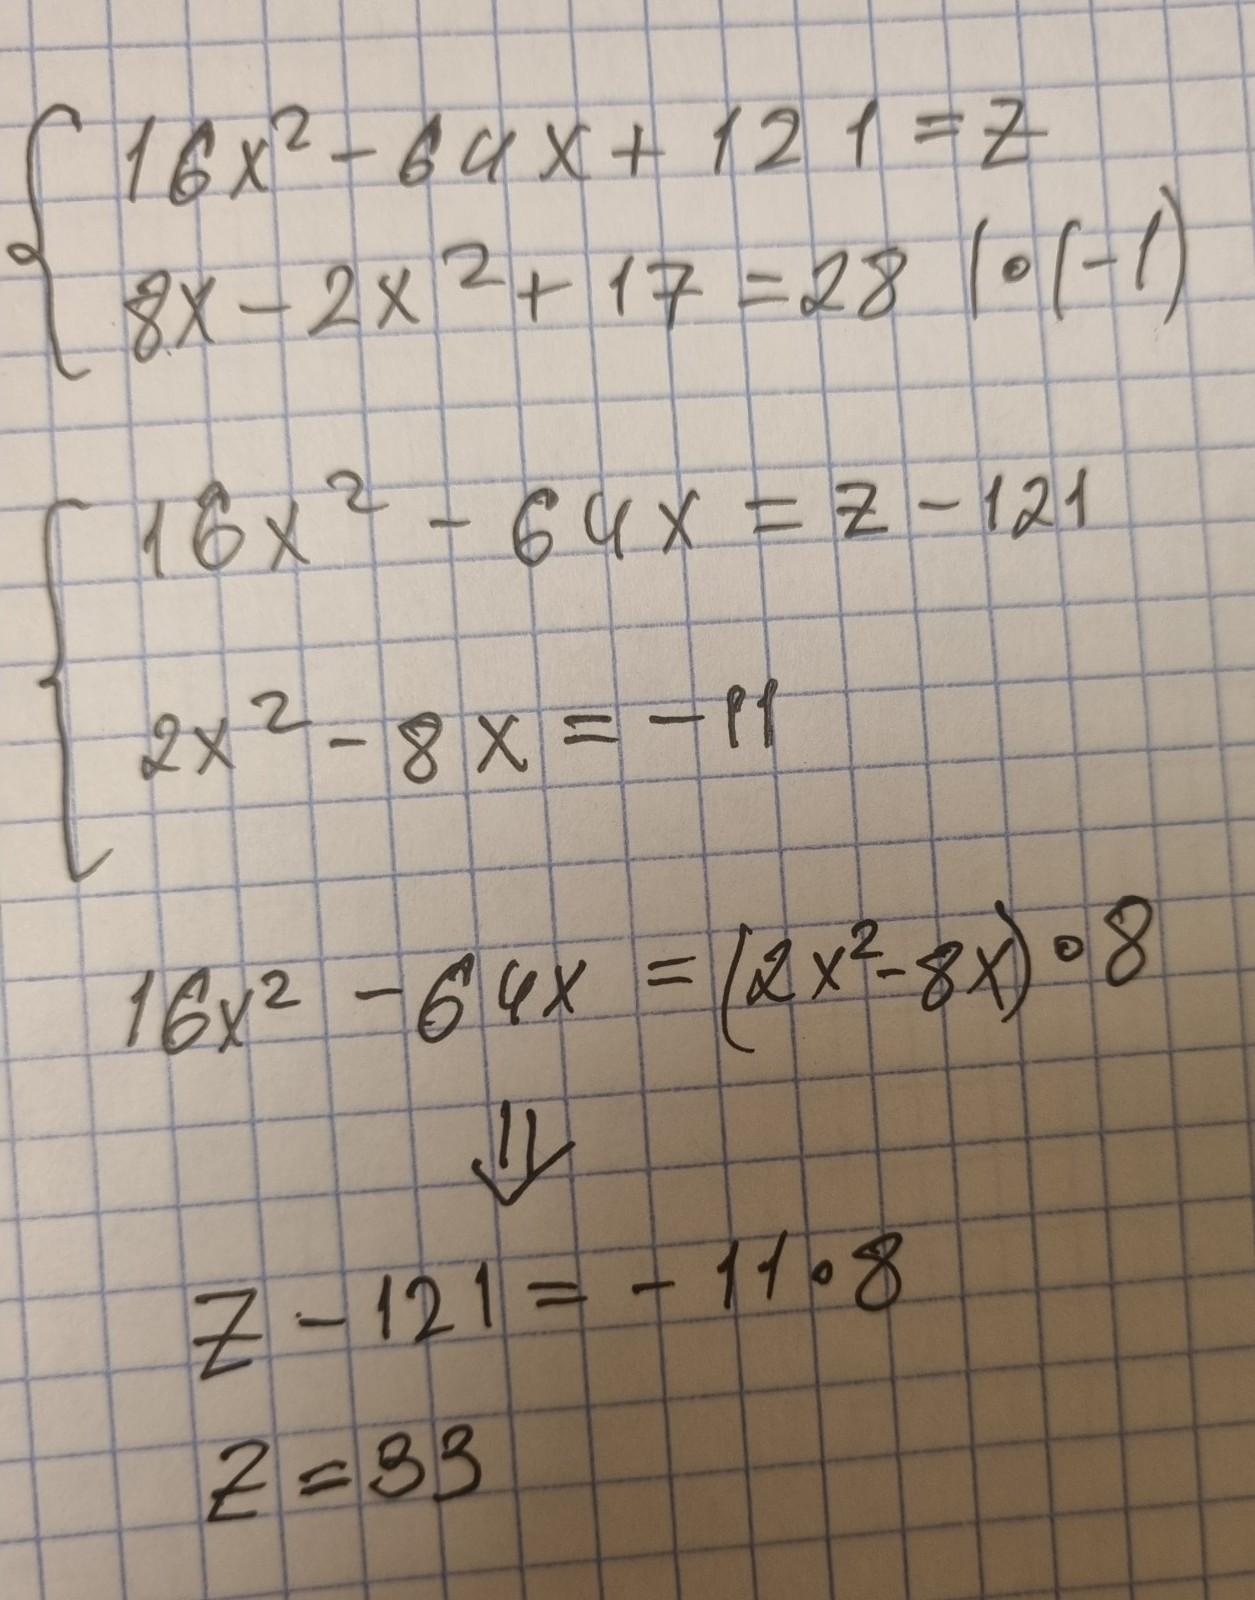 16x² - 64x + 121 = z
8x - 2x² + 17 = 28 | • (-1)
16x² - 64x = z - 121
2x² - 8x = -11
16x² - 64x = (2x² - 8x) • 8
⇓
z - 121 = - 11 • 8
z = 33